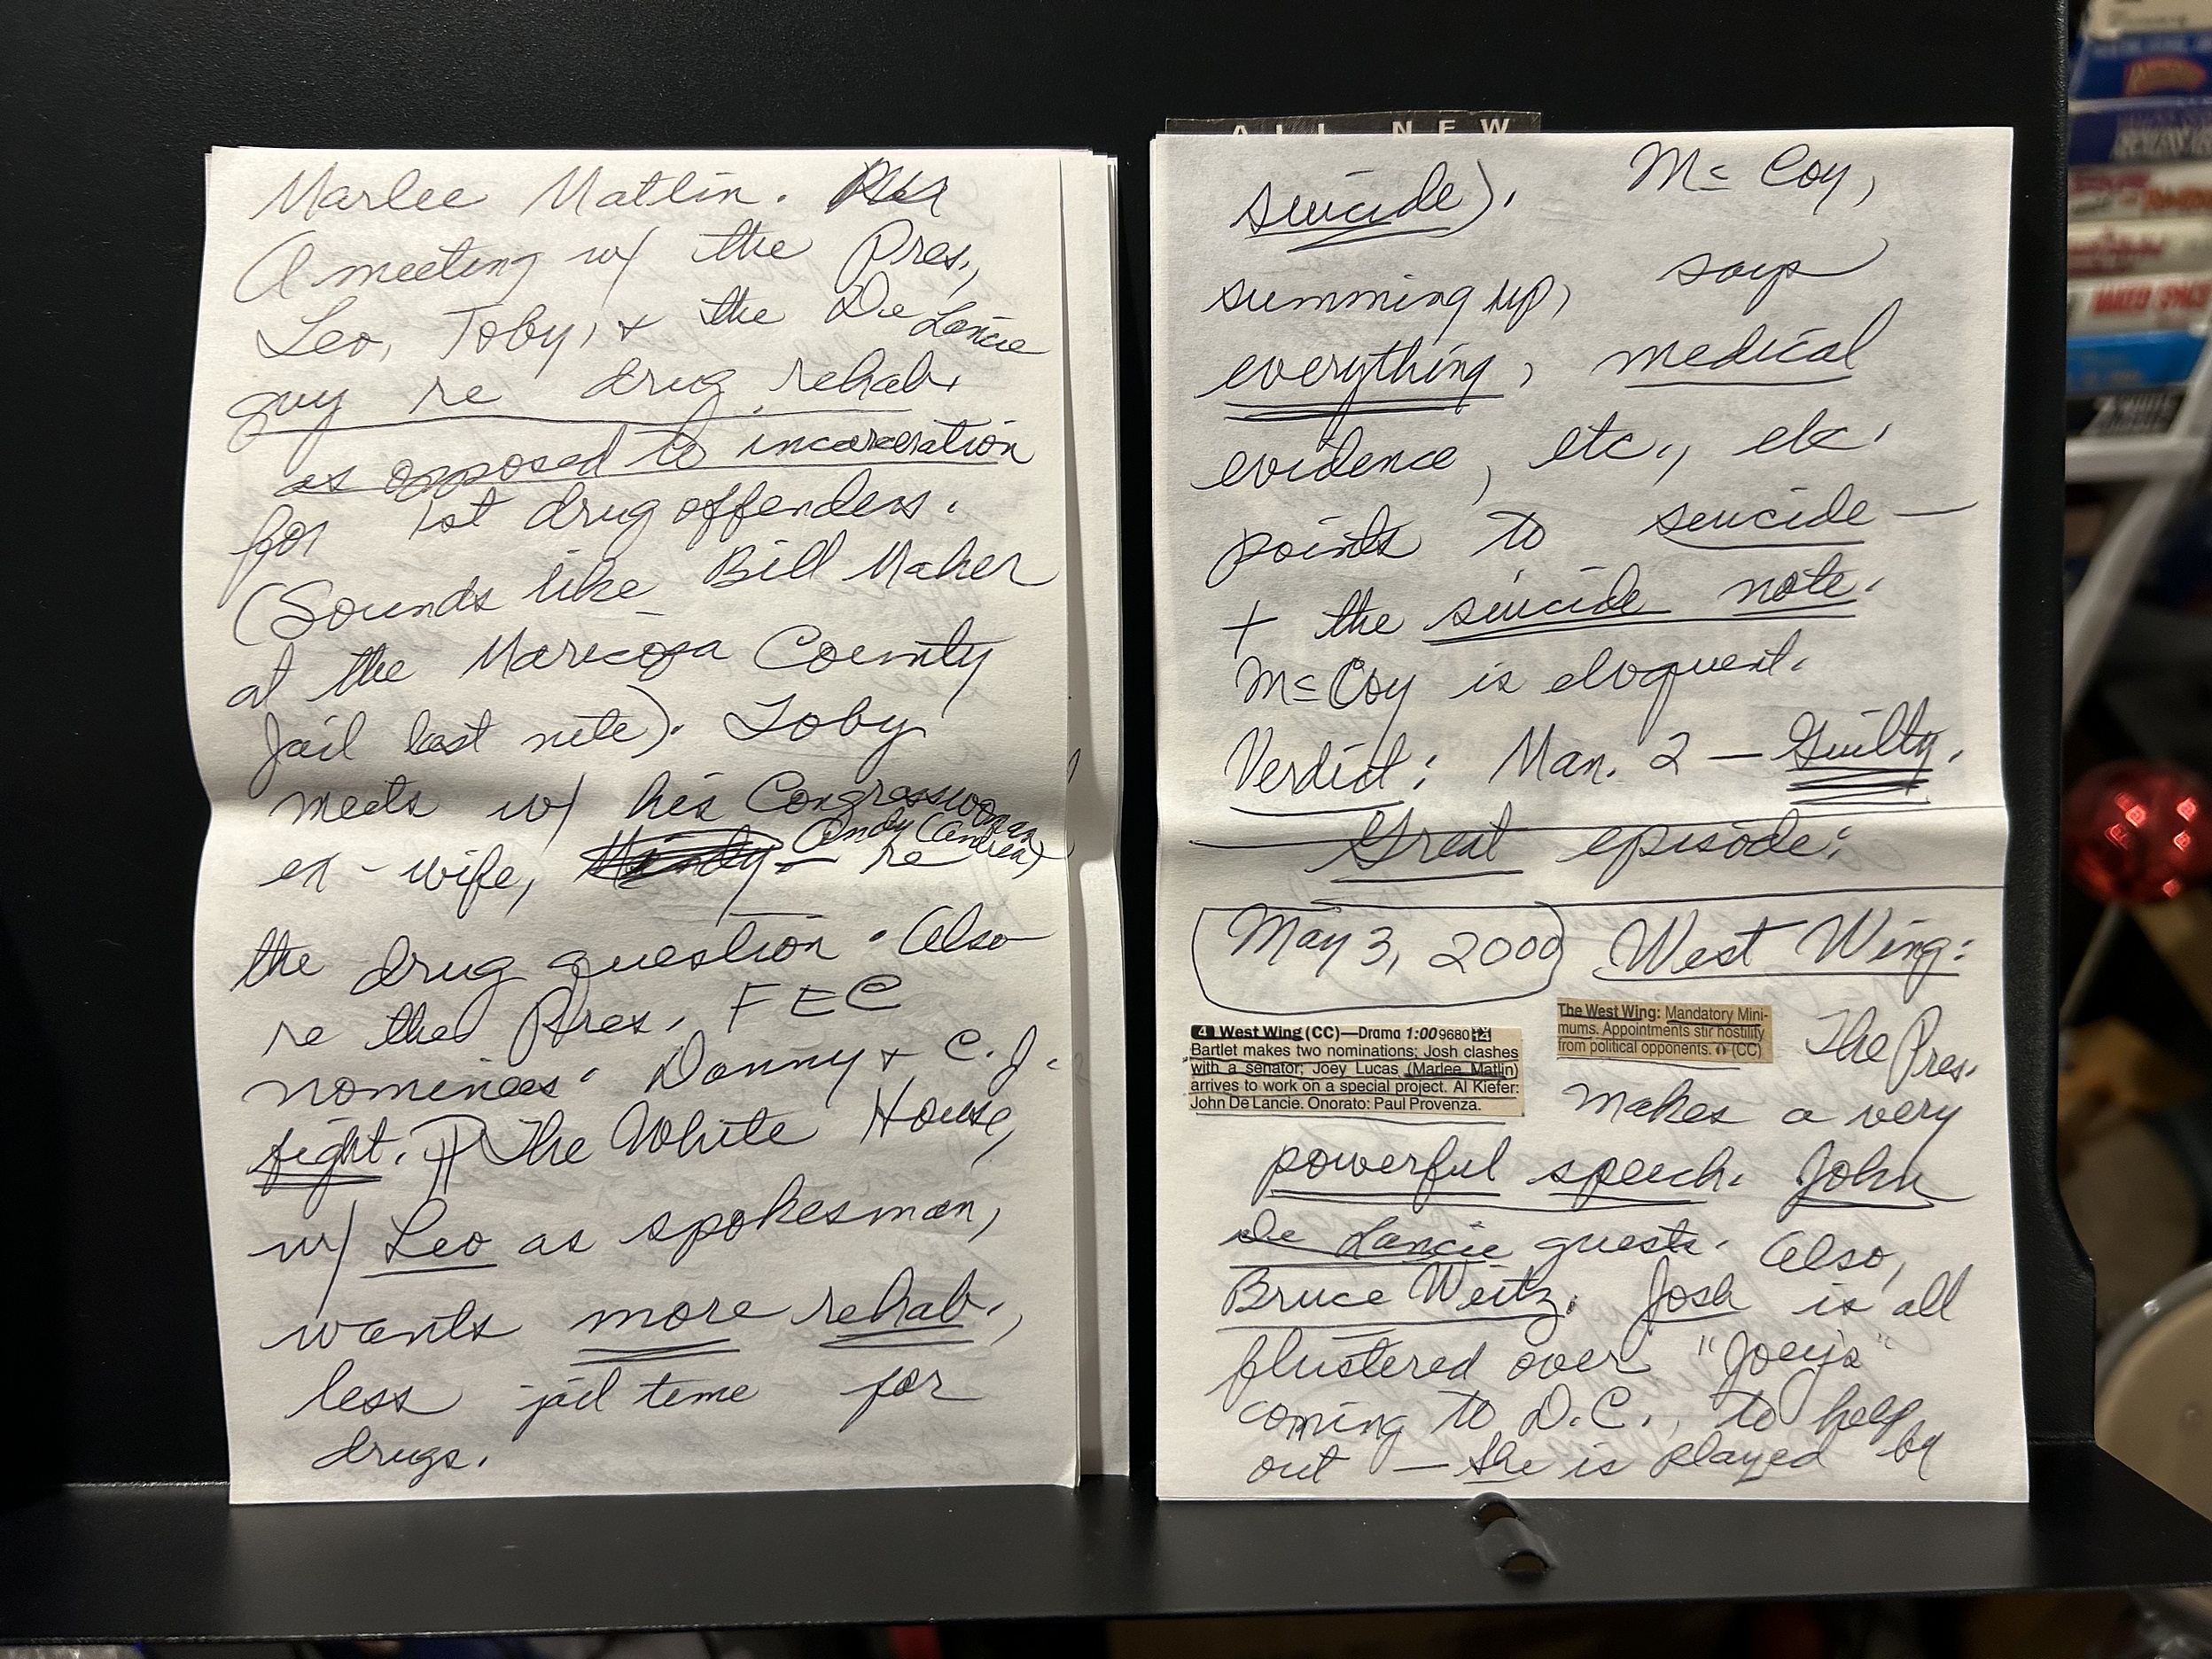 Marlee Matlin.
A meeting w/ the Pres.,
Leo, Toby, + the De Lancie
guy re drug rehab.
as opposed to incarceration
for 1st drug offenders.
(Sounds like Bill Maher
at the Maricopa County
Jail last nite). Toby
meets w/ his Congresswoman
ex-wife, Andy (Andrea) re
the drug question. Also
re the Pres. FEC
nominees. Danny + C.J.
fight. ¶ The White House,
w/ Leo as spokesman,
wants more rehab.,
less jail time for
drugs.
ALL NEW
suicide). McCoy,
summing up, says
everything, medical
evidence, etc., etc.
points to suicide —
+ the suicide note.
McCoy is eloquent.
Verdict: Man. 2 — Guilty.
Great episode:
May 3, 2000 West Wing:
4 West Wing (CC)—Drama 1:00 9680 14
Bartlet makes two nominations; Josh clashes
with a senator; Joey Lucas (Marlee Matlin)
arrives to work on a special project. Al Kiefer:
John De Lancie. Onorato: Paul Provenza.
The West Wing: Mandatory Mini-
mums. Appointments stir hostility
from political opponents. (CC)
The Pres.
makes a very
powerful speech. John
De Lancie guests. Also,
Bruce Weitz. Josh is all
flustered over "Joey's"
coming to D.C., to help
out — She is played by